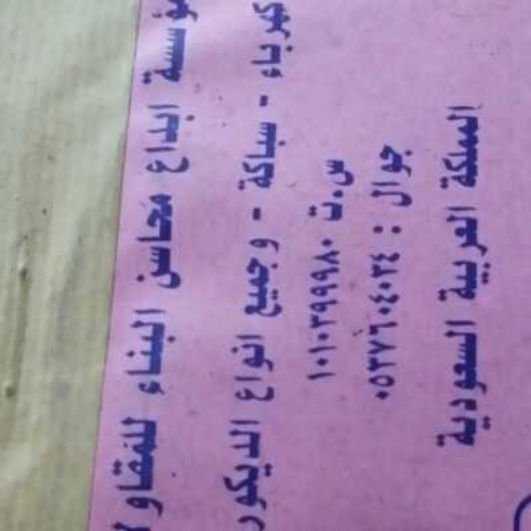 ؤسسة ابداع محاسن البناء للمقاولا
كهرباء - سباكة - وجميع انواع الديكور
س.ت ١٠١٠٣٩٩٩٨٠
جوال : ٠٥٣٧٦٠٤٠٣٤
المملكة العربية السعودية